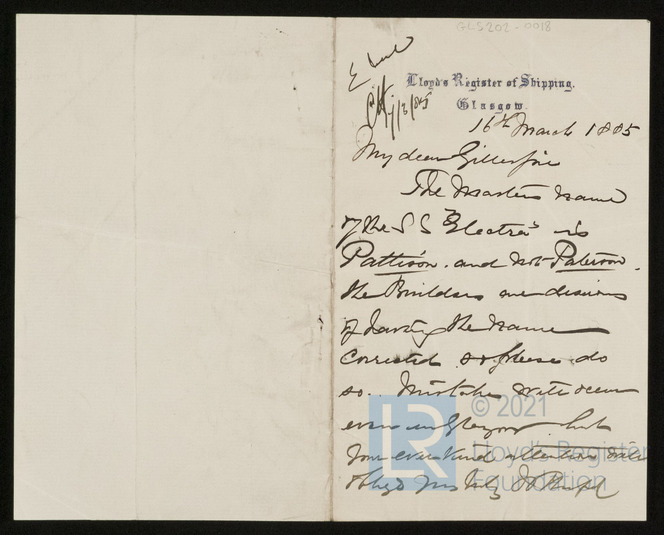 GLS202-0018
Lloyd's Register of Shipping.
Glasgow.
17/3/85
16th March 1885
My dear Gillespie
The Masters name
of the SS "Electra" is
Pattison. and not Paterson.
the Builders are desirous
of having the name
corrected so please do
so. Mistakes will occur
even in Glasgow. but
your ever kind attention will
oblige yours truly
© 2021
LR
Lloyd's Register
Foundation